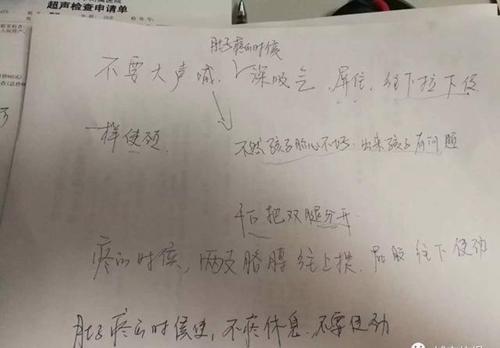 超声检查申请单
肚子疼的时候
不要大声喊，深吸气，屏住，往下拉下住
一样使劲
不然孩子胎心不好，出来孩子有问题
把双腿分开
疼的时候，两支胳膊往上摸，屁股往下使劲
肚子疼的时候使，不疼休息，不要使劲